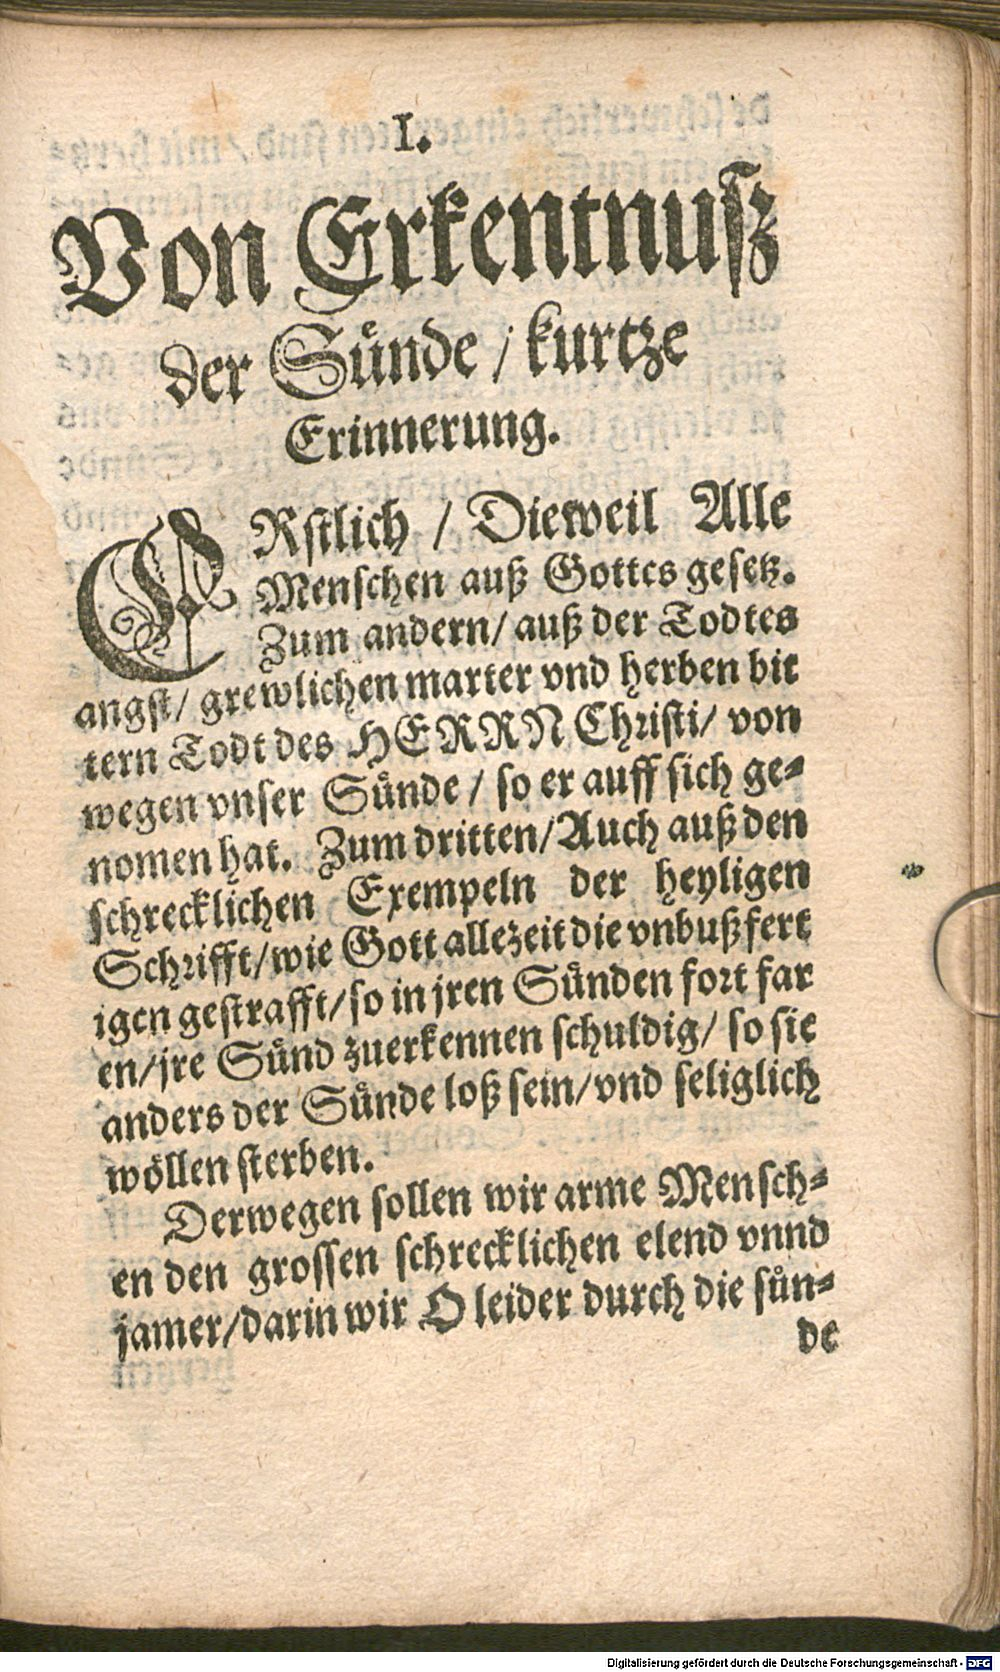 I.
Von Erkentnuſz
der Suͤnde / kurtze
Erinnerung.
ERſtlich / Dieweil Alle
Menſchen auß Gottes geſetz.
Zum andern/ auß der Todtes
angſt/ grewlichen marter vnd herben bit
tern Todt des HERRN Chriſti/ von
wegen vnſer Suͤnde / ſo er auff ſich ge⸗
nomen hat. Zum dritten/Auch auß den
ſchrecklichen Exempeln der heyligen
Schrifft/wie Gott allezeit die vnbußfert
igen geſtrafft/ſo in jren Suͤnden fort far
en/jre Suͤnd zuerkennen ſchuldig/ ſo ſie
anders der Suͤnde loß ſein/vnd ſeliglich
woͤllen ſterben.
Derwegen ſollen wir arme Menſch⸗
en den groſſen ſchrecklichen elend vnnd
jamer/darin wir O leider durch die ſuͤn⸗
de
Digitalisierung gefördert durch die Deutsche Forschungsgemeinschaft - DFG